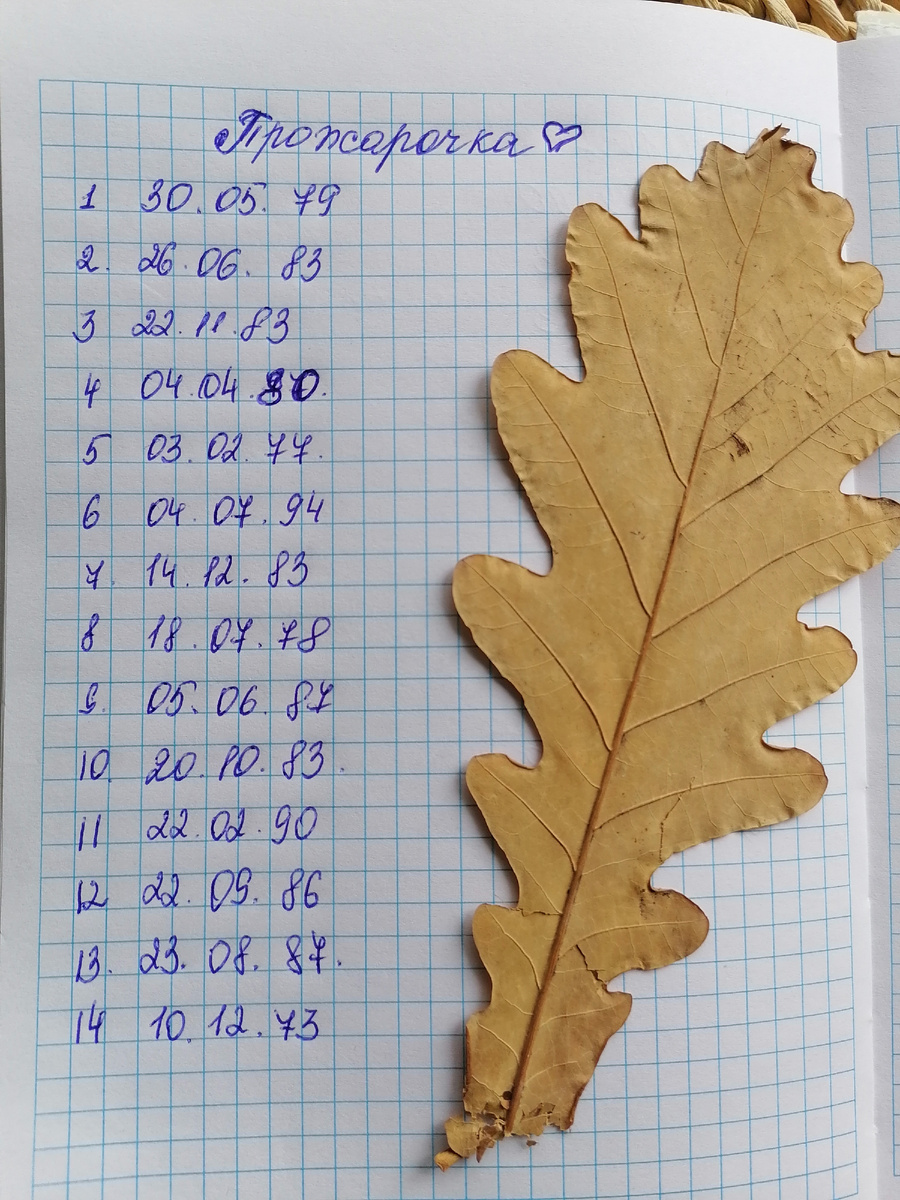 Прожарочка♡
1 30.05.79
2. 26.06.83
3 22.11.83
4 04.04.80.
5 03.02.77.
6 04.07.94
7. 14.12.83
8 18.07.78
9. 05.06.87
10. 20.10.83.
11 22.02.90
12 22.09.86
13. 23.08.87.
14 10.12.73